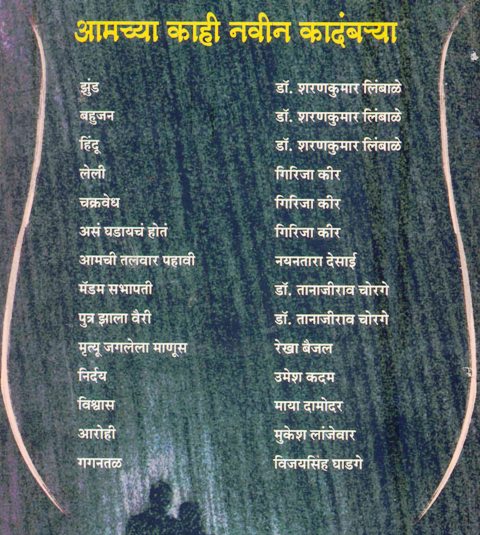 आमच्या काही नवीन कादंबऱ्या
झुंड डॉ. शरणकुमार लिंबाळे
बहुजन डॉ. शरणकुमार लिंबाळे
हिंदू डॉ. शरणकुमार लिंबाळे
लेली गिरिजा कीर
चक्रवेध गिरिजा कीर
असं घडायचं होतं गिरिजा कीर
आमची तलवार पहावी नयनतारा देसाई
मॅडम सभापती डॉ. तानाजीराव चोरगे
पुत्र झाला वैरी डॉ. तानाजीराव चोरगे
मृत्यू जगलेला माणूस रेखा बैजल
निर्दय उमेश कदम
विश्वास माया दामोदर
आरोही मुकेश लांजेवार
गगनतळ विजयसिंह घाडगे